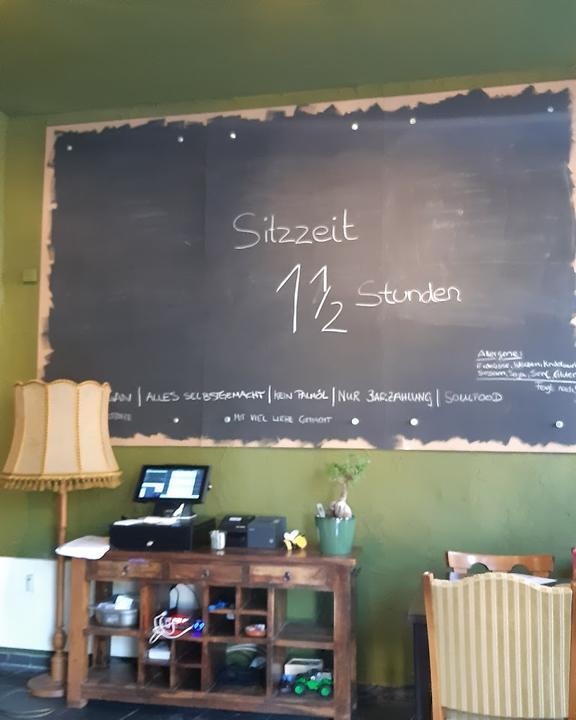 Sitzzeit
1 1/2 Stunden
Allergene:
Erdnüsse, Weizen,
Sesam, Soja, Senf,
ALLES SELBSTGEMACHT | KEIN PALMÖL | NUR BARZAHLUNG | SOULFOOD
MIT VIEL LIEBE GEMACHT